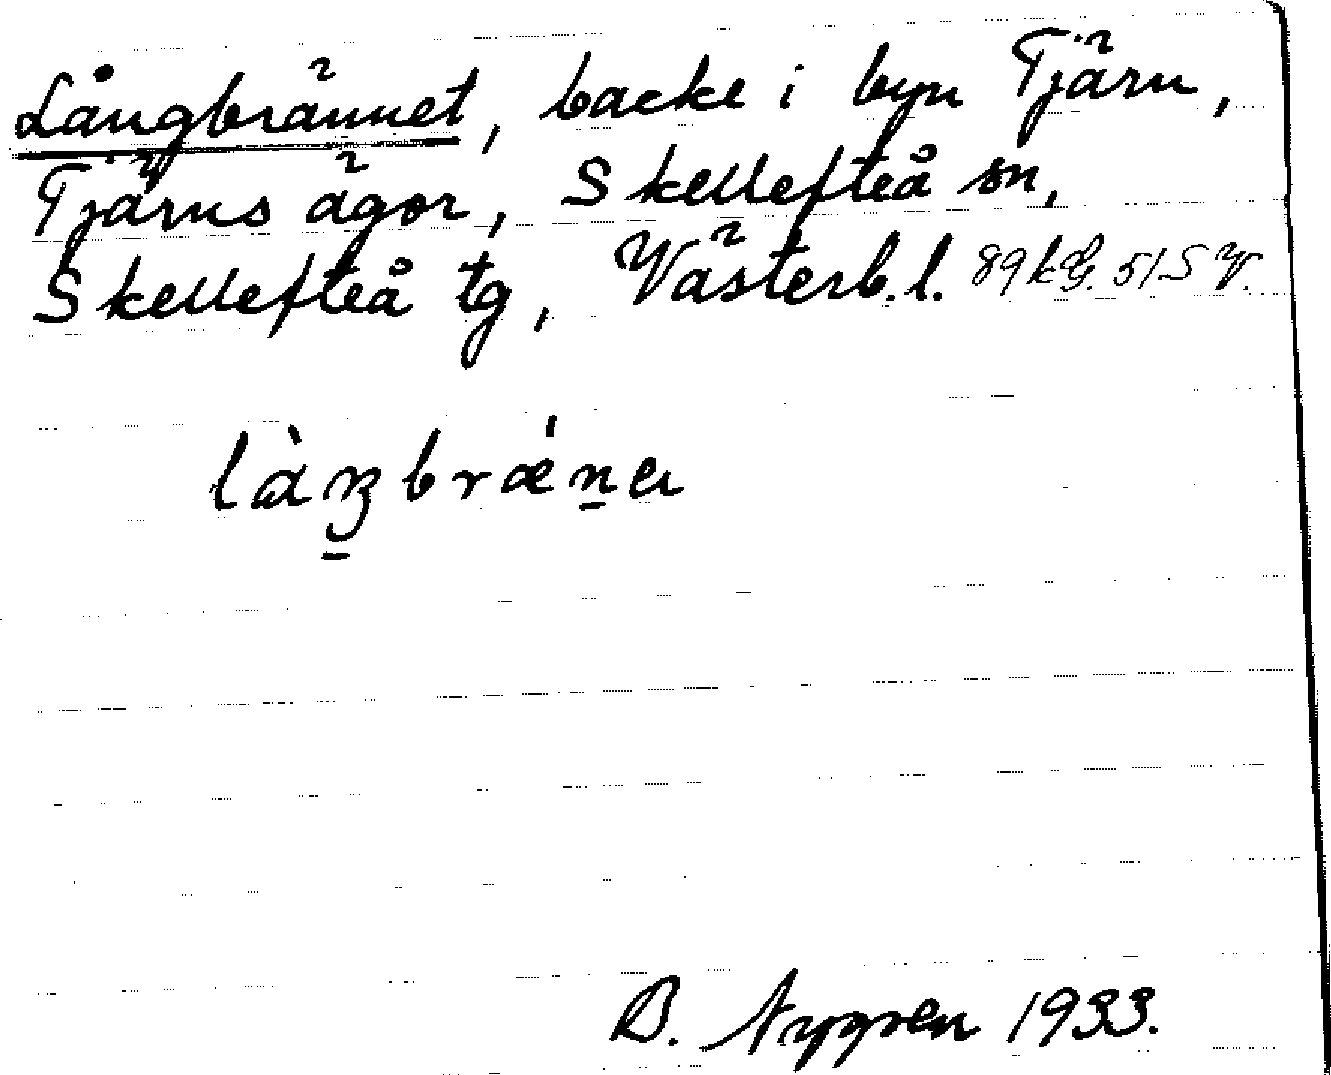 Långbrännet, backe i byn Tjärn,
Tjärns ägor, Skellefteå sn,
Skellefteå tg, Västerb. l. 89 k G. 51 S V.
là̱ŋbrǽṉa
B. Nygren 1933.